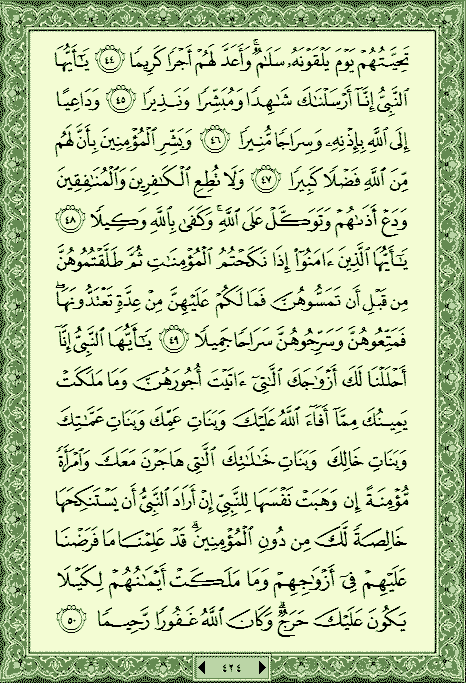 تَحِيَّتُهُمْ يَوْمَ يَلْقَوْنَهُۥ سَلَـٰمٌ ۚ وَأَعَدَّ لَهُمْ أَجْرًا كَرِيمًا ٤٤ يَـٰٓأَيُّهَا
ٱلنَّبِىُّ إِنَّآ أَرْسَلْنَـٰكَ شَـٰهِدًا وَمُبَشِّرًا وَنَذِيرًا ٤٥ وَدَاعِيًا
إِلَى ٱللَّهِ بِإِذْنِهِۦ وَسِرَاجًا مُّنِيرًا ٤٦ وَبَشِّرِ ٱلْمُؤْمِنِينَ بِأَنَّ لَهُم
مِّنَ ٱللَّهِ فَضْلًا كَبِيرًا ٤٧ وَلَا تُطِعِ ٱلْكَـٰفِرِينَ وَٱلْمُنَـٰفِقِينَ
وَدَعْ أَذَىٰهُمْ وَتَوَكَّلْ عَلَى ٱللَّهِ ۚ وَكَفَىٰ بِٱللَّهِ وَكِيلًا ٤٨
يَـٰٓأَيُّهَا ٱلَّذِينَ ءَامَنُوٓا۟ إِذَا نَكَحْتُمُ ٱلْمُؤْمِنَـٰتِ ثُمَّ طَلَّقْتُمُوهُنَّ
مِن قَبْلِ أَن تَمَسُّوهُنَّ فَمَا لَكُمْ عَلَيْهِنَّ مِنْ عِدَّةٍ تَعْتَدُّونَهَا ۖ
فَمَتِّعُوهُنَّ وَسَرِّحُوهُنَّ سَرَاحًا جَمِيلًا ٤٩ يَـٰٓأَيُّهَا ٱلنَّبِىُّ إِنَّآ
أَحْلَلْنَا لَكَ أَزْوَٰجَكَ ٱلَّـٰتِىٓ ءَاتَيْتَ أُجُورَهُنَّ وَمَا مَلَكَتْ
يَمِينُكَ مِمَّآ أَفَآءَ ٱللَّهُ عَلَيْكَ وَبَنَاتِ عَمِّكَ وَبَنَاتِ عَمَّـٰتِكَ
وَبَنَاتِ خَالِكَ وَبَنَاتِ خَـٰلَـٰتِكَ ٱلَّـٰتِى هَاجَرْنَ مَعَكَ وَٱمْرَأَةً
مُّؤْمِنَةً إِن وَهَبَتْ نَفْسَهَا لِلنَّبِىِّ إِنْ أَرَادَ ٱلنَّبِىُّ أَن يَسْتَنكِحَهَا
خَالِصَةً لَّكَ مِن دُونِ ٱلْمُؤْمِنِينَ ۗ قَدْ عَلِمْنَا مَا فَرَضْنَا
عَلَيْهِمْ فِىٓ أَزْوَٰجِهِمْ وَمَا مَلَكَتْ أَيْمَـٰنُهُمْ لِكَيْلَا
يَكُونَ عَلَيْكَ حَرَجٌ ۗ وَكَانَ ٱللَّهُ غَفُورًا رَّحِيمًا ٥٠
٤٢٤